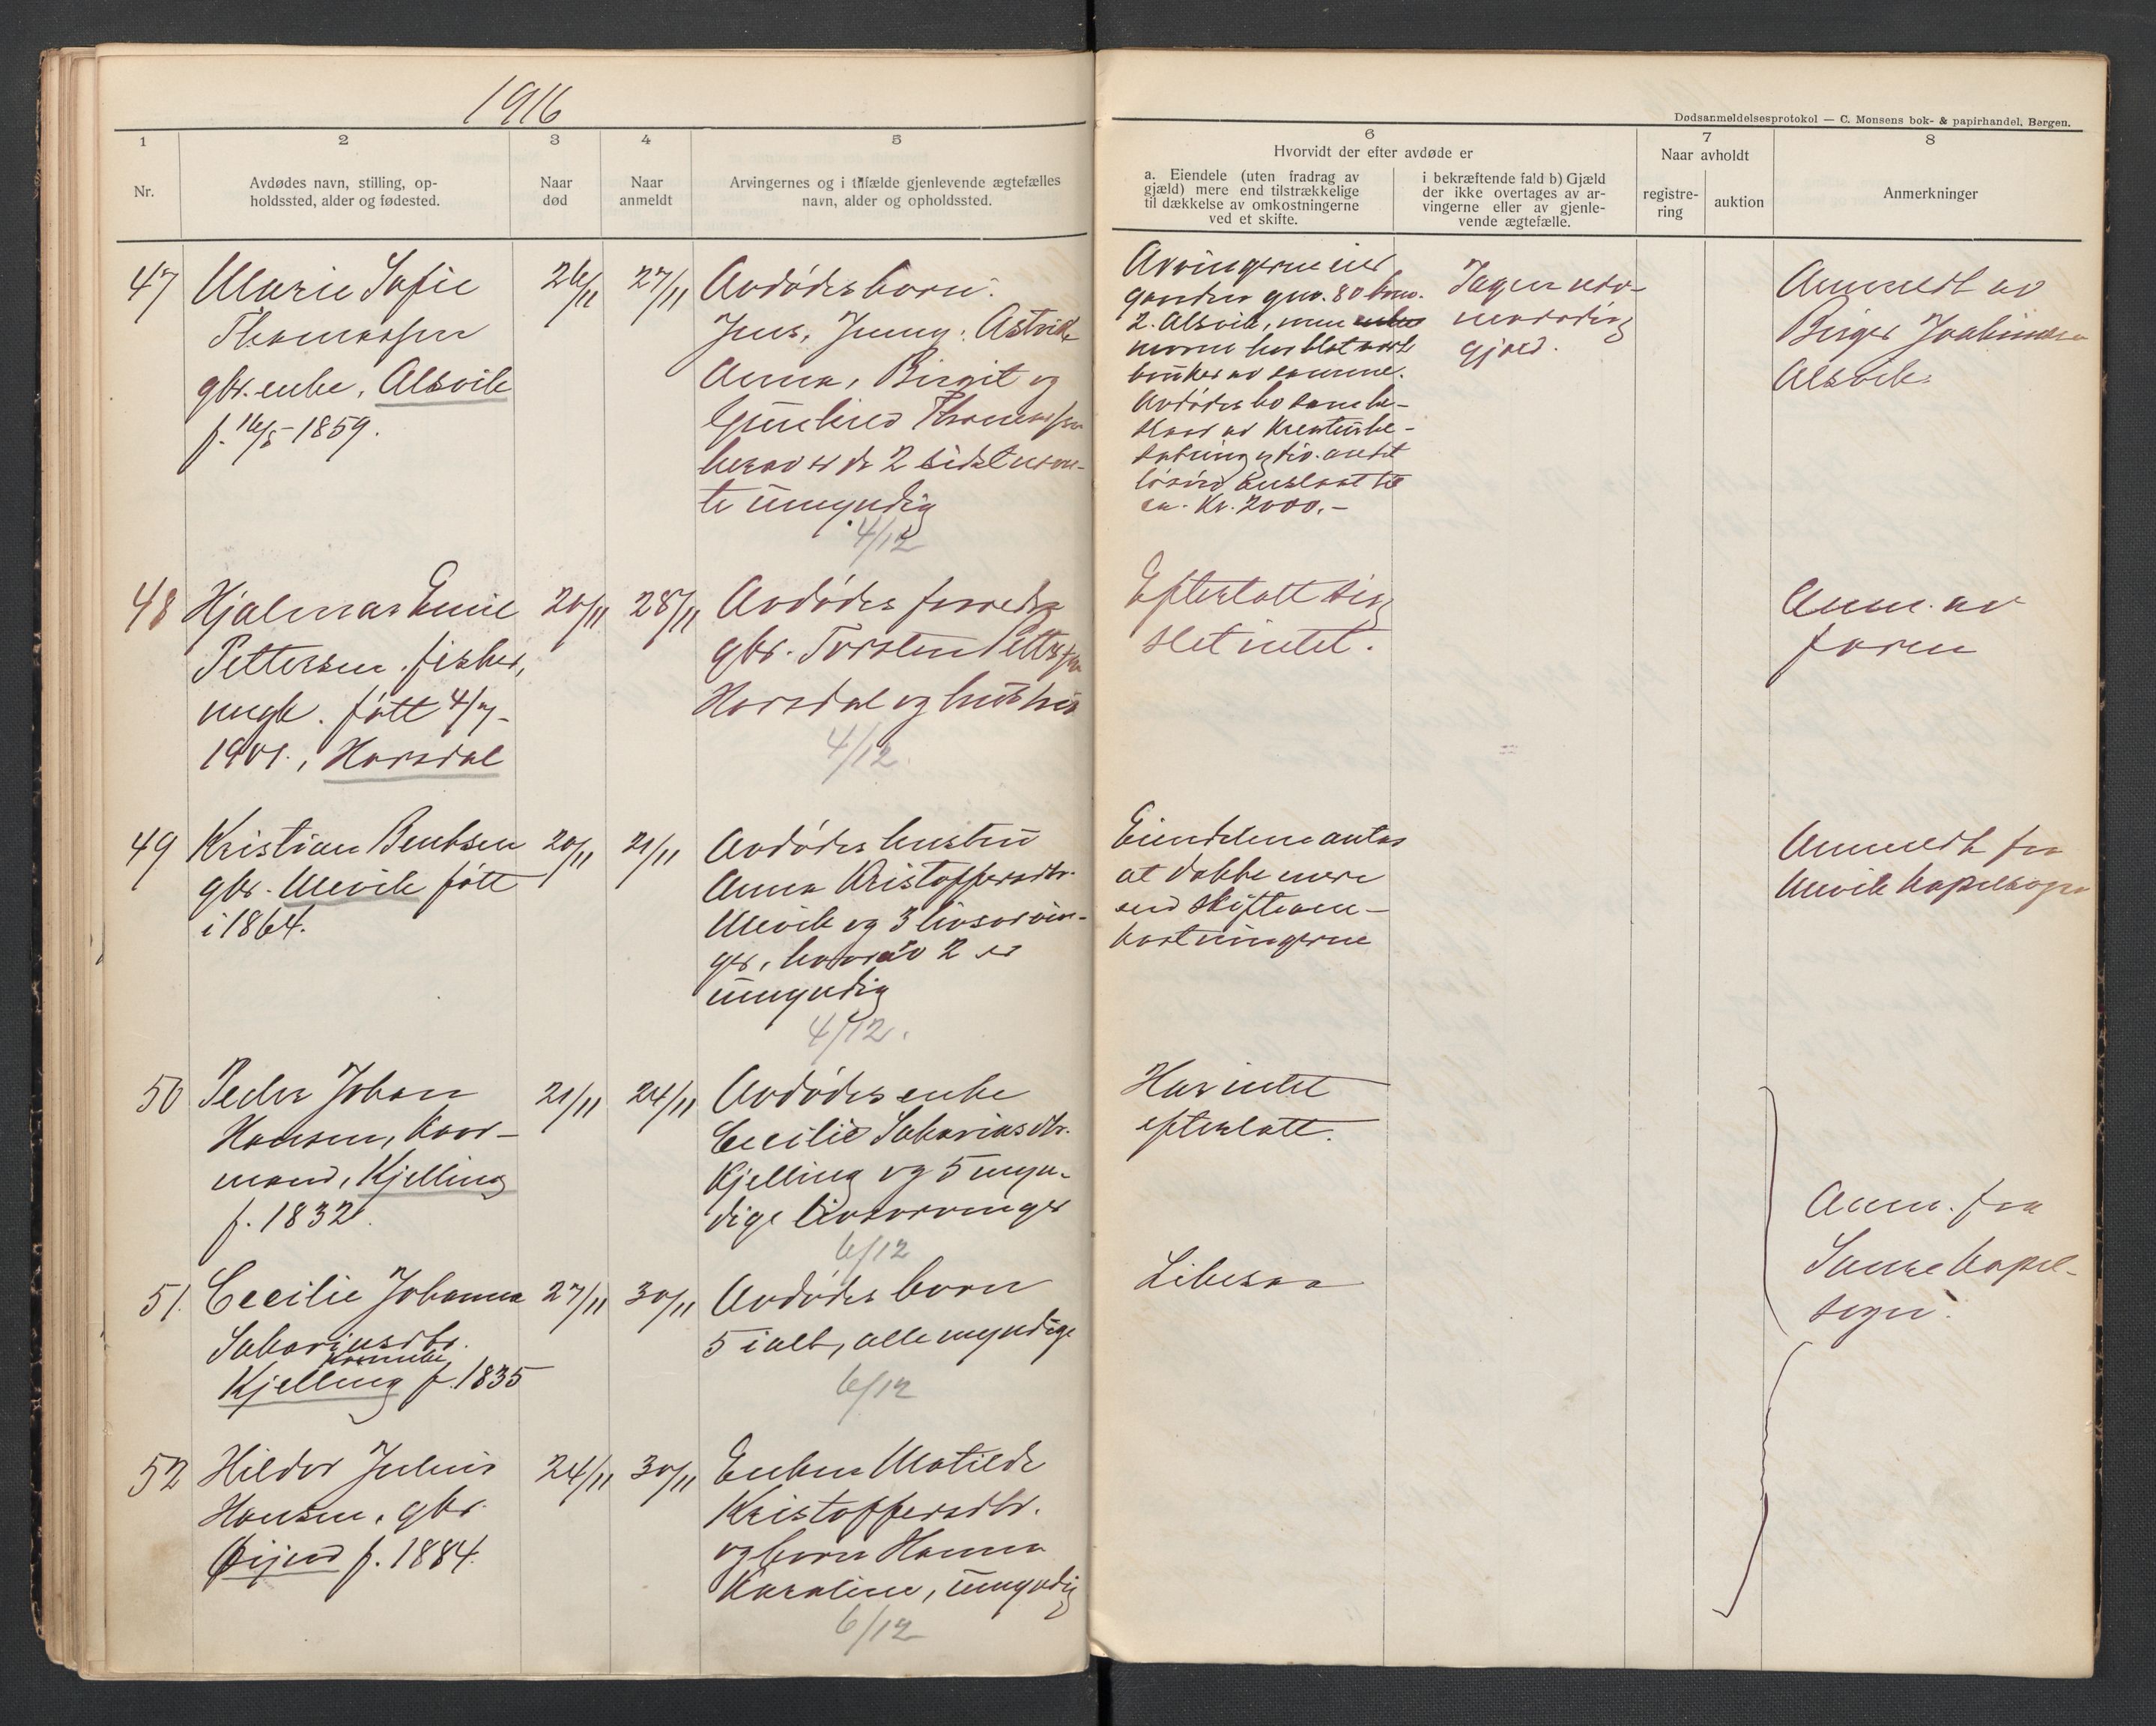 1916
Dødsanmeldelsesprotokol — C. Monsens bok- & papirhandel, Bergen.
1 2 3 4 5 6 7 8
Nr.
Avdødes navn, stilling, op-
holdssted, alder og fødested.
Naar
død
Naar
anmeldt
Arvingernes og i tilfælde gjenlevende ægtefælles
navn, alder og opholdssted.
Hvorvidt der efter avdøde er
a. Eiendele (uten fradrag av
gjæld) mere end tilstrækkelige
til dækkelse av omkostningerne
ved et skifte.
i bekræftende fald b) Gjæld
der ikke overtages av ar-
vingerne eller av gjenle-
vende ægtefælle.
Naar avholdt
registre-
ring
auktion
Anmerkninger
47
Marie Sofie
Thomassen
gbr. enke, Alsvik
f. 16/5-1859.
26/11
27/11
Avdødes børn:
Jens, Jenny, Astrid,
Anna, Birgit og
Thomassen
herav er de 2 sidst nævn-
te umyndig
4/12
Arvingerne eier
gaarden gnr. 80 brnr.
2. Alsvik, men
bruker av samme.
Avdødes bo
staar av Kreaturbe-
sætning og div. andet
løsøre anslaat til
ca. Kr. 2000.-
Ingen
gjæld.
Anmeldt av
Birger Joakimsen
Alsvik.
48
Hjalmar Emil
Pettersen, fisker,
ungk. født 4/7-
1901., Horsdal
20/11
28/11
Avdødes forældre
gbr. Torsten Pettersen
Horsdal og hustru
4/12
Efterlatt sig
slet intet.
Anm. av
faren
49
Kristian Bentsen
gbr. Ulevik født
i 1864.
20/11
21/11
Avdødes hustru
Anna Kristoffersdtr.
Ulevik og 3 livsarvin-
ger, hvorav 2 er
umyndig
4/12.
Eiendelene antas
at dække mere
end skifteom-
kostningerne
Anmeldt fra
Ulevik kapelsogn
50
Peder Johan
Hansen, kaar-
mand, Kjelling
f. 1832.
21/11
24/11
Avdødes enke
Cecilie Sakariasdtr.
Kjelling og 5 myn-
dige livsarvinger
6/12
Har intet
efterlatt.
Anm. fra
kapel-
sogn.
51.
Cecilie Johanna
Sakariasdtr.
kaarenke
Kjelling f. 1835
27/11
30/11
Avdødes børn
5 i alt, alle myndige
6/12
Likesaa
52
Hildor Julius
Hansen, gbr.
f. 1884.
24/11
30/11
Enken Matilde
Kristoffersdtr.
og barn Hanna
Karoline, umyndig
6/12